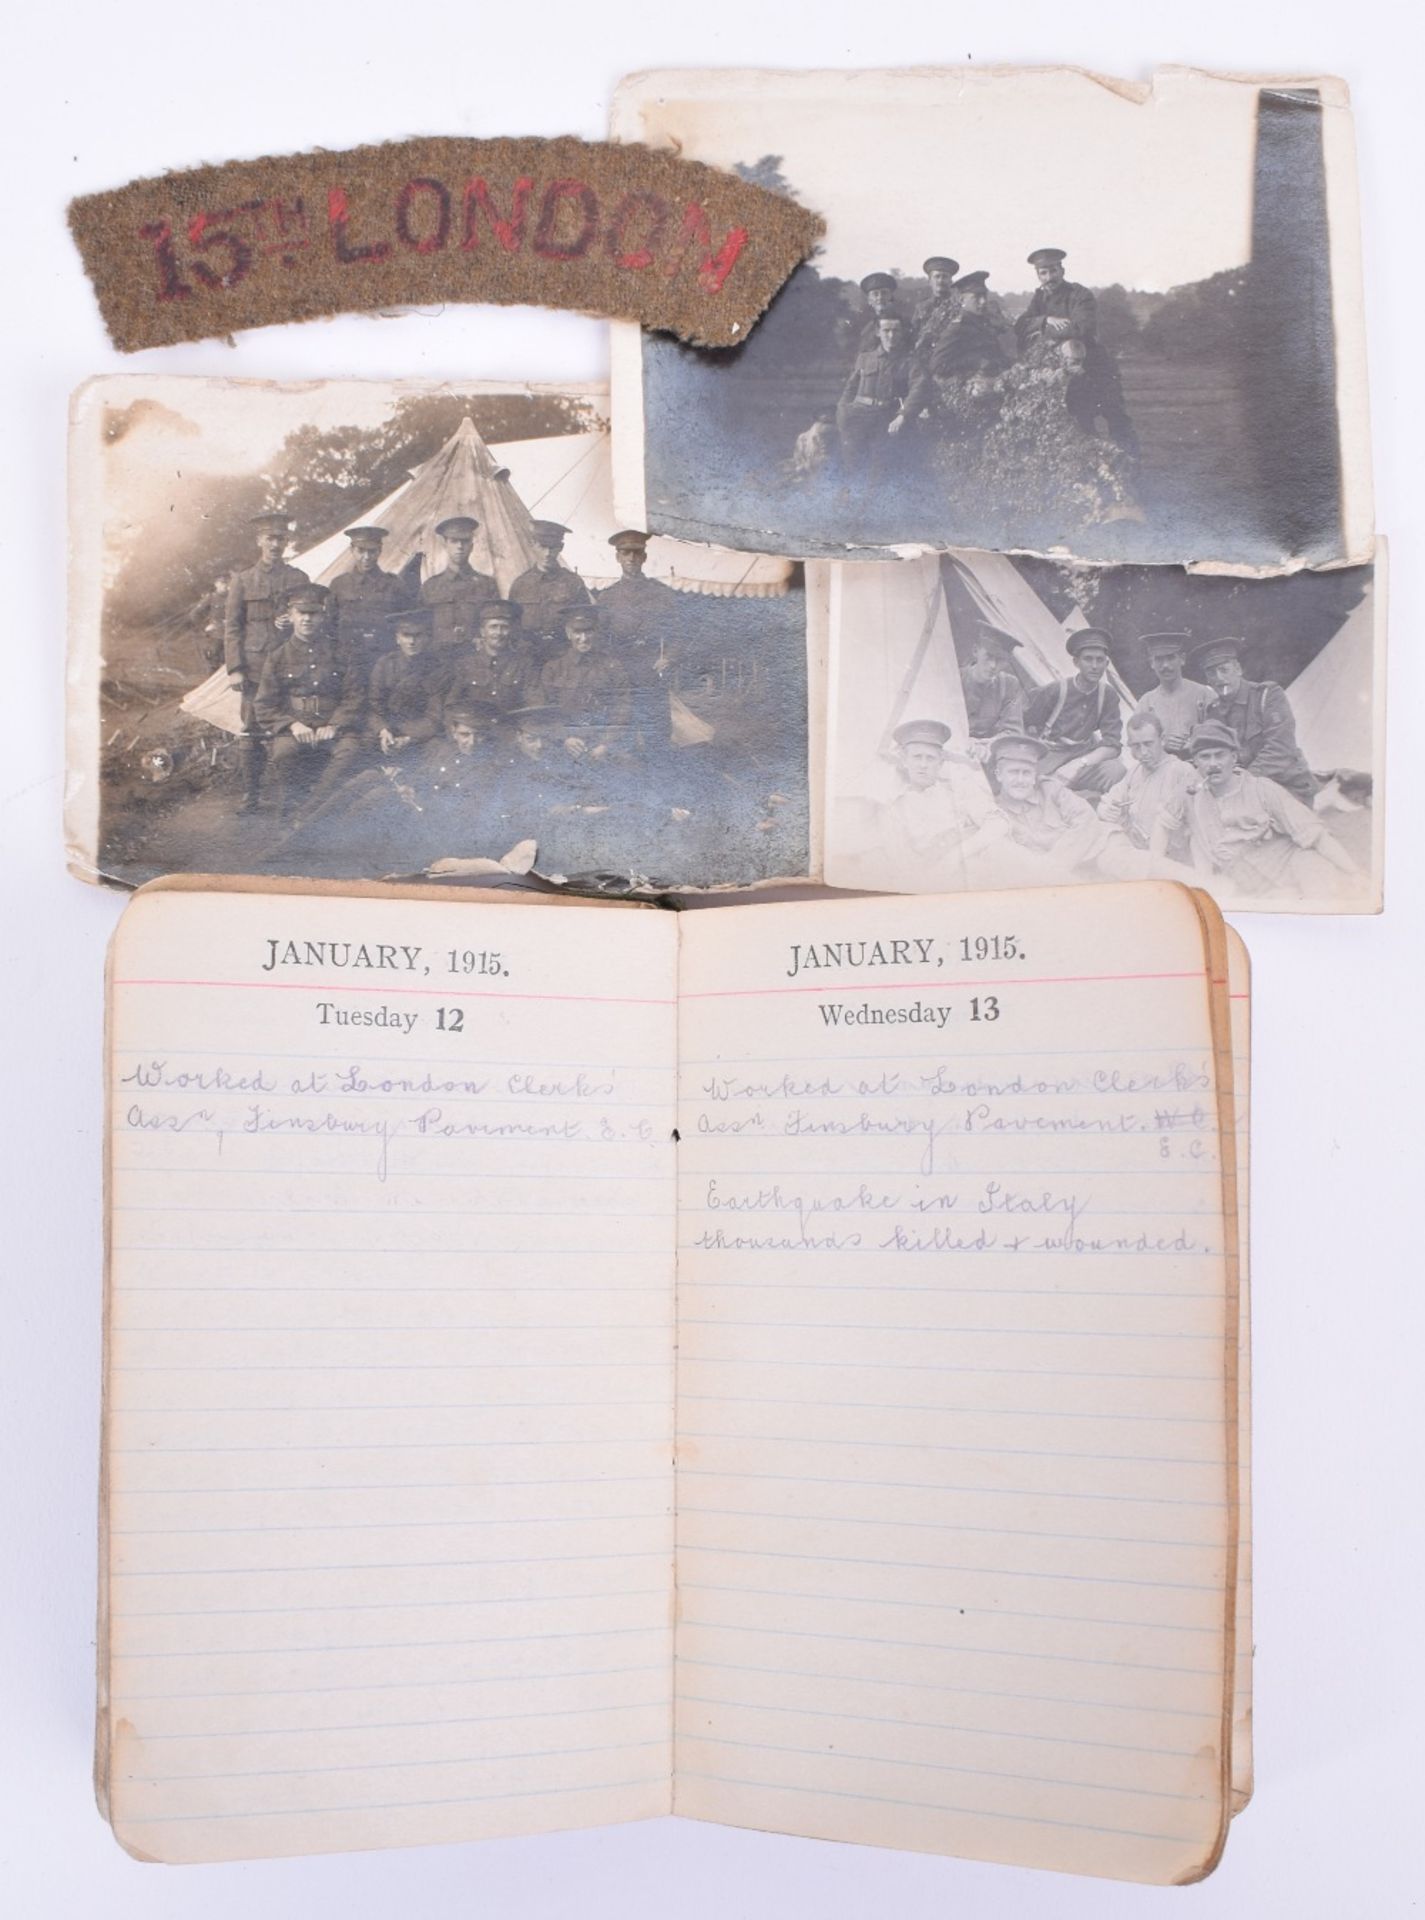 15TH LONDON
JANUARY, 1915.
Tuesday 12
Worked at London Clerks'
Assn, Finsbury Pavement. E. C.
JANUARY, 1915.
Wednesday 13
Worked at London Clerks'
Assn. Finsbury Pavement. W C.
E. C.
Earthquake in Italy
thousands killed + wounded.